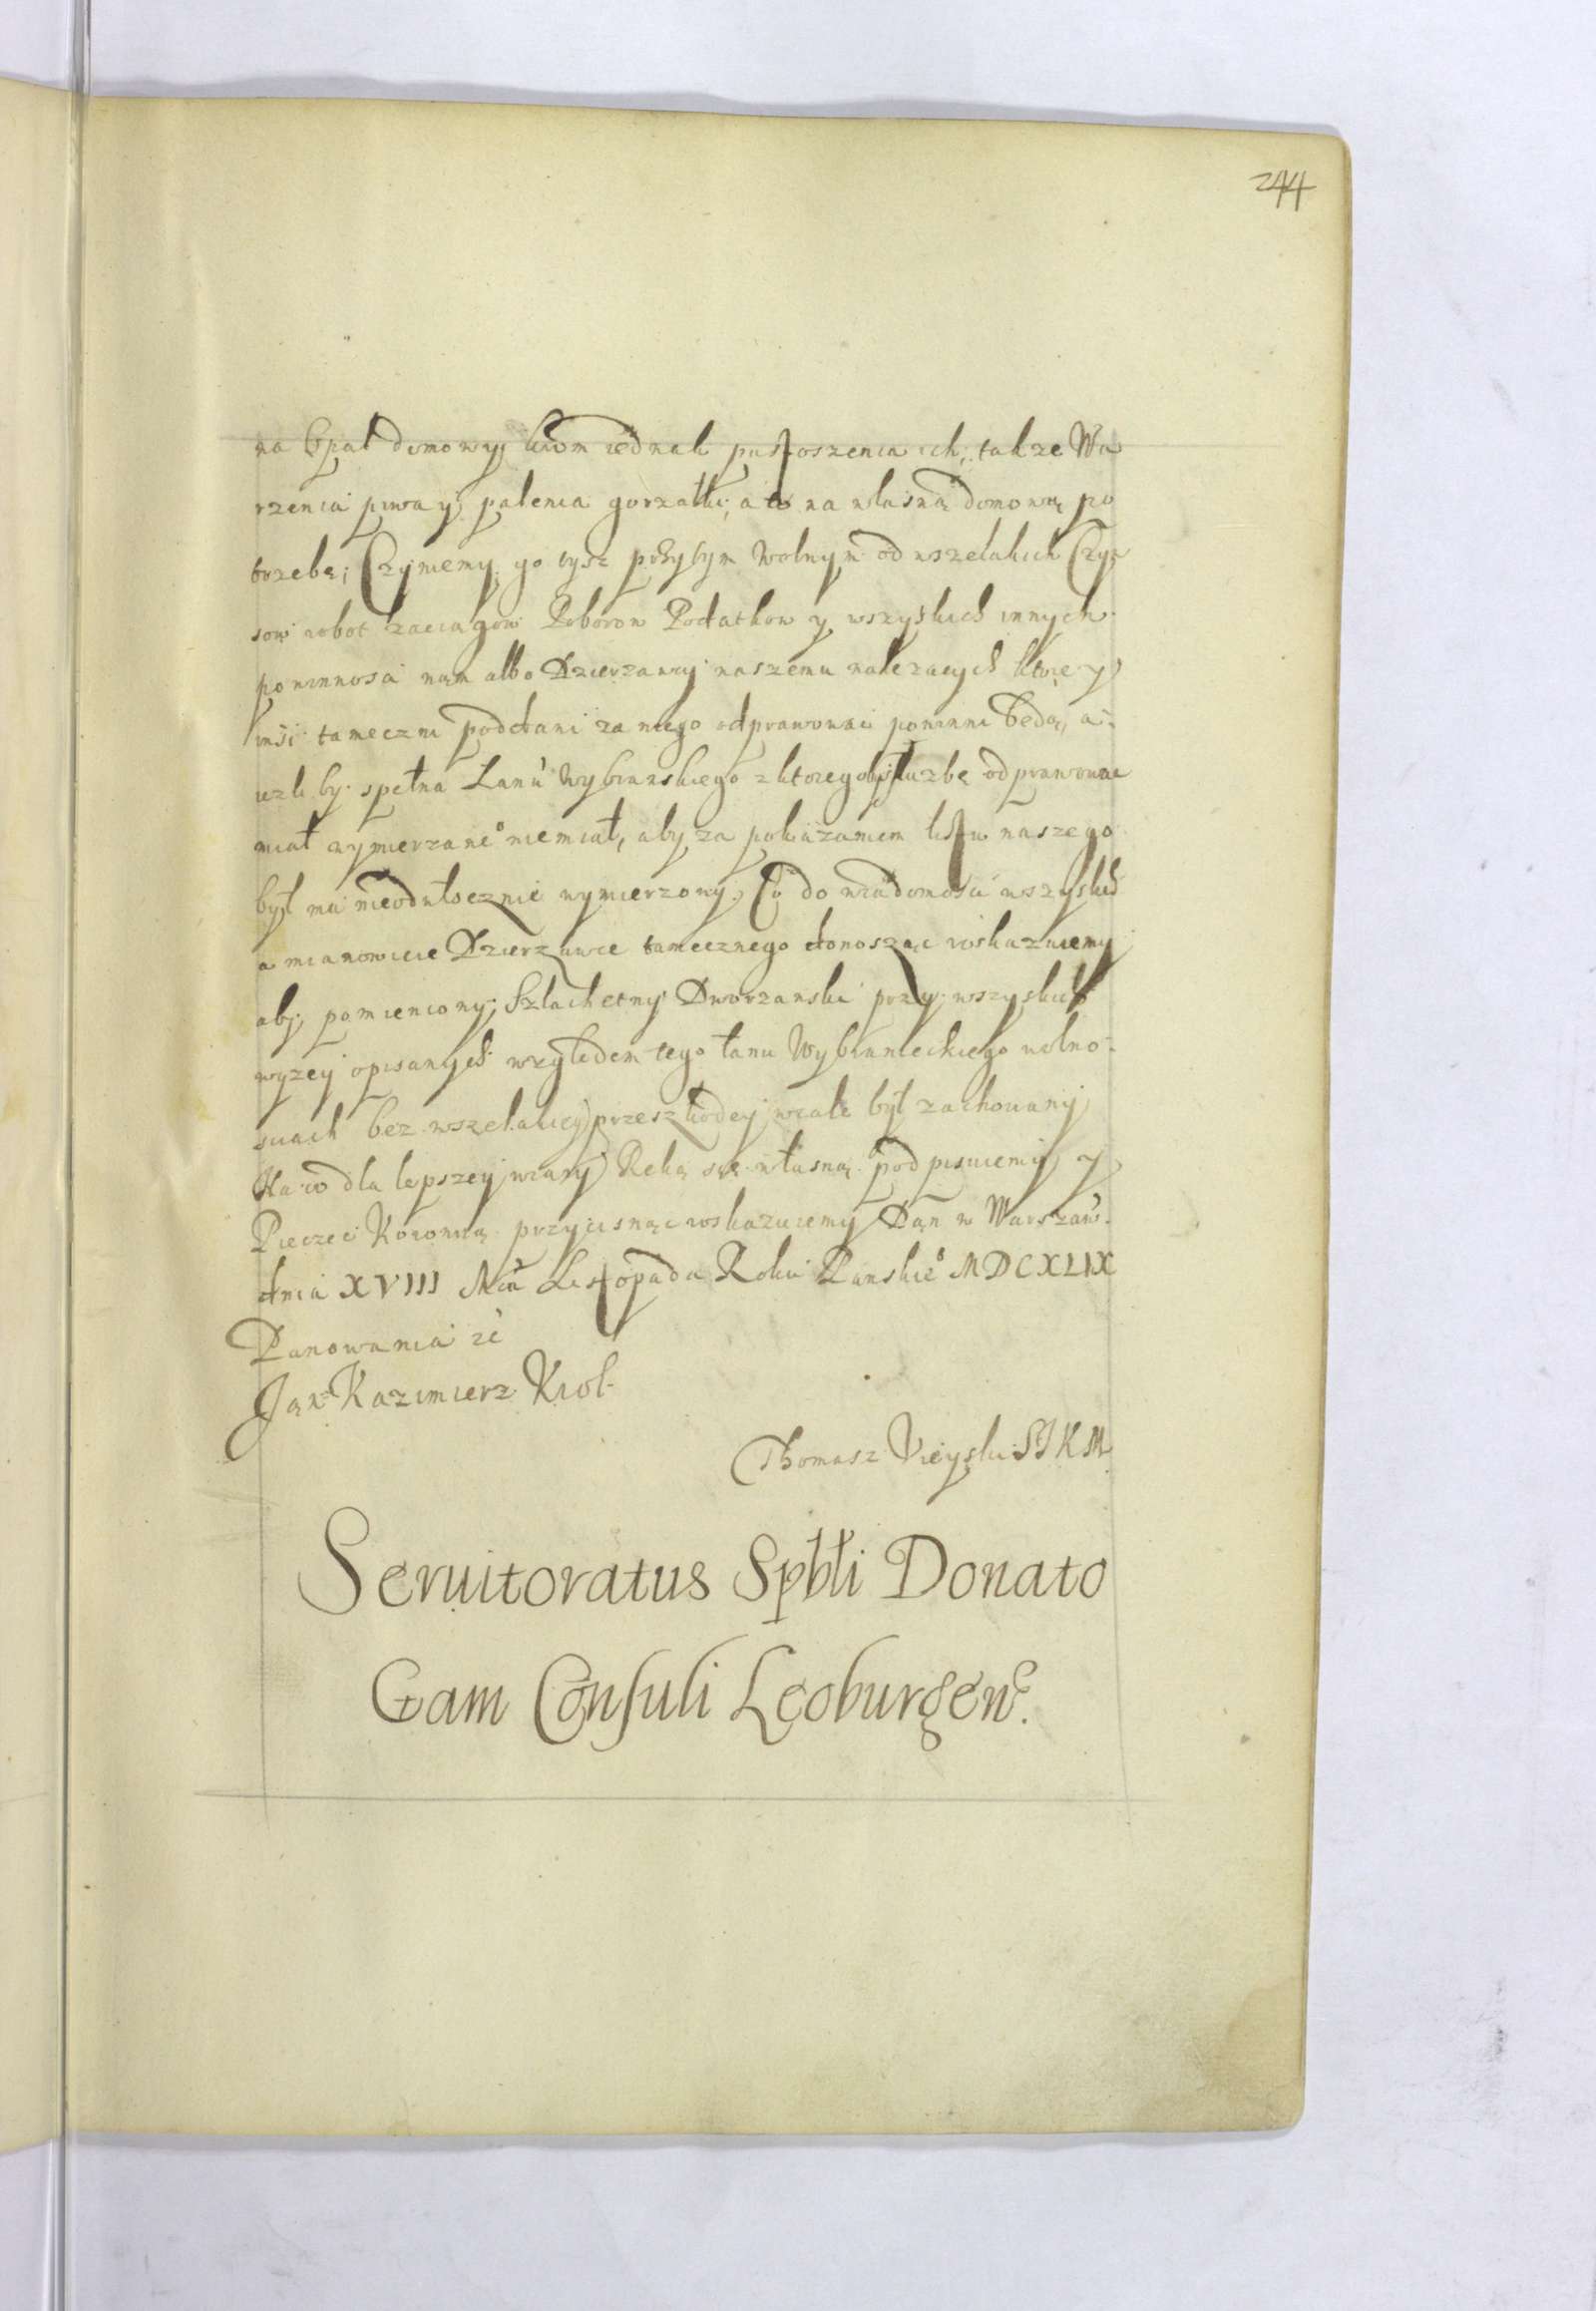 244
na Opał domowy krom iednak pustoszenia ich, takze Wa
rzenia piwa y palenia gorzałki, a to na własną domową po
trzebę; Czyniemy go tysz przytym Wolnym od wszelakich Czyn
sow robot zaciągow Poborow Podatkow y wszyskich innych
powinnosci nam albo Dzierzawcy naszemu nalezących ktore y
inśi tameczni poddani za niego odprawowaci powinni będą, a i
ezli by spełna Łanu Wybranskiego z ktorego służbę odprawowac
miał wymierzane° niemiał, aby za pokazaniem listu naszego
był mu nieodwłocznie wymierzony. Co do wiadomosci wszyskich
a mianowicie Dzierzawce tamecznego donosząc roskazuiemy
aby pomieniony Szlachetny Dworzanski przy wszyskich
wyzey opisanych względem tego łanu Wybranieckiego wolno
sciach bez wszelakiey przeszkody wcale był zachowany
Na co dla lepszey wiary Ręką się własną podpisuiemy y
Pieczęć Koronną przycisnąc roskazuiemy Dan w Warszaw.
dnia XVIII Mca Listopada Roku Panskie° MDCXLIX
Panowania ec
Jan Kazimierz Krol
Thomasz Vieyski SJKM
Seruitoratus Spbłi Donato
Gam Consuli Leoburgen.